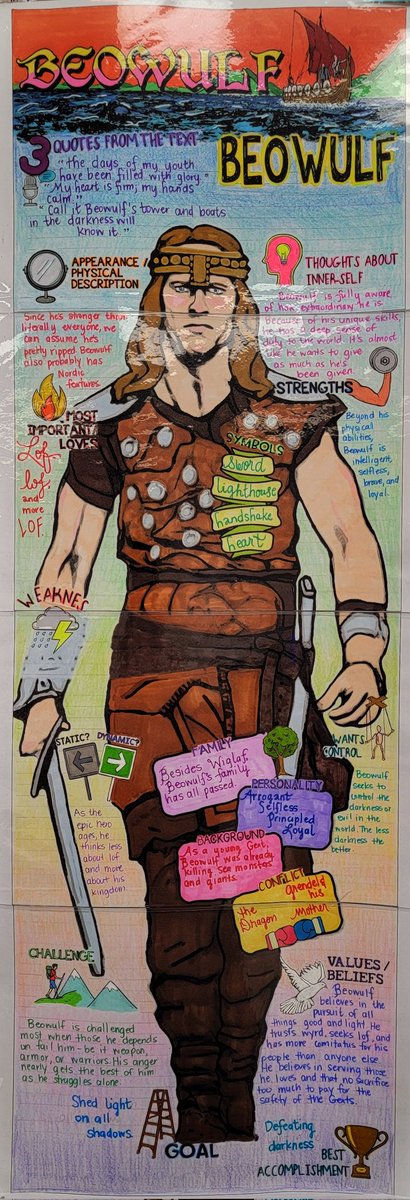 BEOWULF
3 QUOTES FROM THE TEXT
"The days of my youth
have been filled with glory."
"My heart is firm; my hands
calm."
"Call it Beowulf's tower and boats
in the darkness will
know it."
BEOWULF
APPEARANCE /
PHYSICAL
DESCRIPTION
Since he's stronger than
literally everyone, we
can assume he's
pretty ripped. Beowulf
also probably has
Nordic
features.
THOUGHTS ABOUT
INNER-SELF
Beowulf is fully aware
of how extraordinary he is.
Because of his unique skills,
he has a deep sense of
duty to the world. It's almost
like he wants to give
as much as he's
been given.
STRENGTHS
Beyond his
physical
abilities,
Beowulf is
intelligent,
selfless,
brave, and
loyal.
MOST
IMPORTANT/
LOVES
Lof,
lof,
and
more
LOF.
SYMBOLS
sword
lighthouse
handshake
heart
WEAKNES
STATIC? DYNAMIC?
As the
epic hero
ages, he
thinks less
about lof
and more
about his
kingdom.
FAMILY
Besides Wiglaf,
Beowulf's family
has all passed.
WANTS
CONTROL
Beowulf
seeks to
control the
darkness or
evil in the
world. The less
darkness the
better.
PERSONALITY
Arrogant
Selfless
Principled
Loyal
BACKGROUND
As a young Geat,
Beowulf was already
killing sea monsters
and giants.
CONFLICT
Grendel &
his
Mother
the
Dragon
CHALLENGE
Beowulf is challenged
most when those he depends
on fail him - be it weapon,
armor, or warriors. His anger
nearly gets the best of him
as he struggles alone.
VALUES/
BELIEFS
Beowulf
believes in the
pursuit of all
things good and light. He
trusts wyrd, seeks lof, and
has more comitatus for his
people than anyone else.
He believes in serving those
he loves and that no sacrifice
too much to pay for the
safety of the Geats.
Shed light
on all
shadows.
GOAL
Defeating
darkness
BEST
ACCOMPLISHMENT